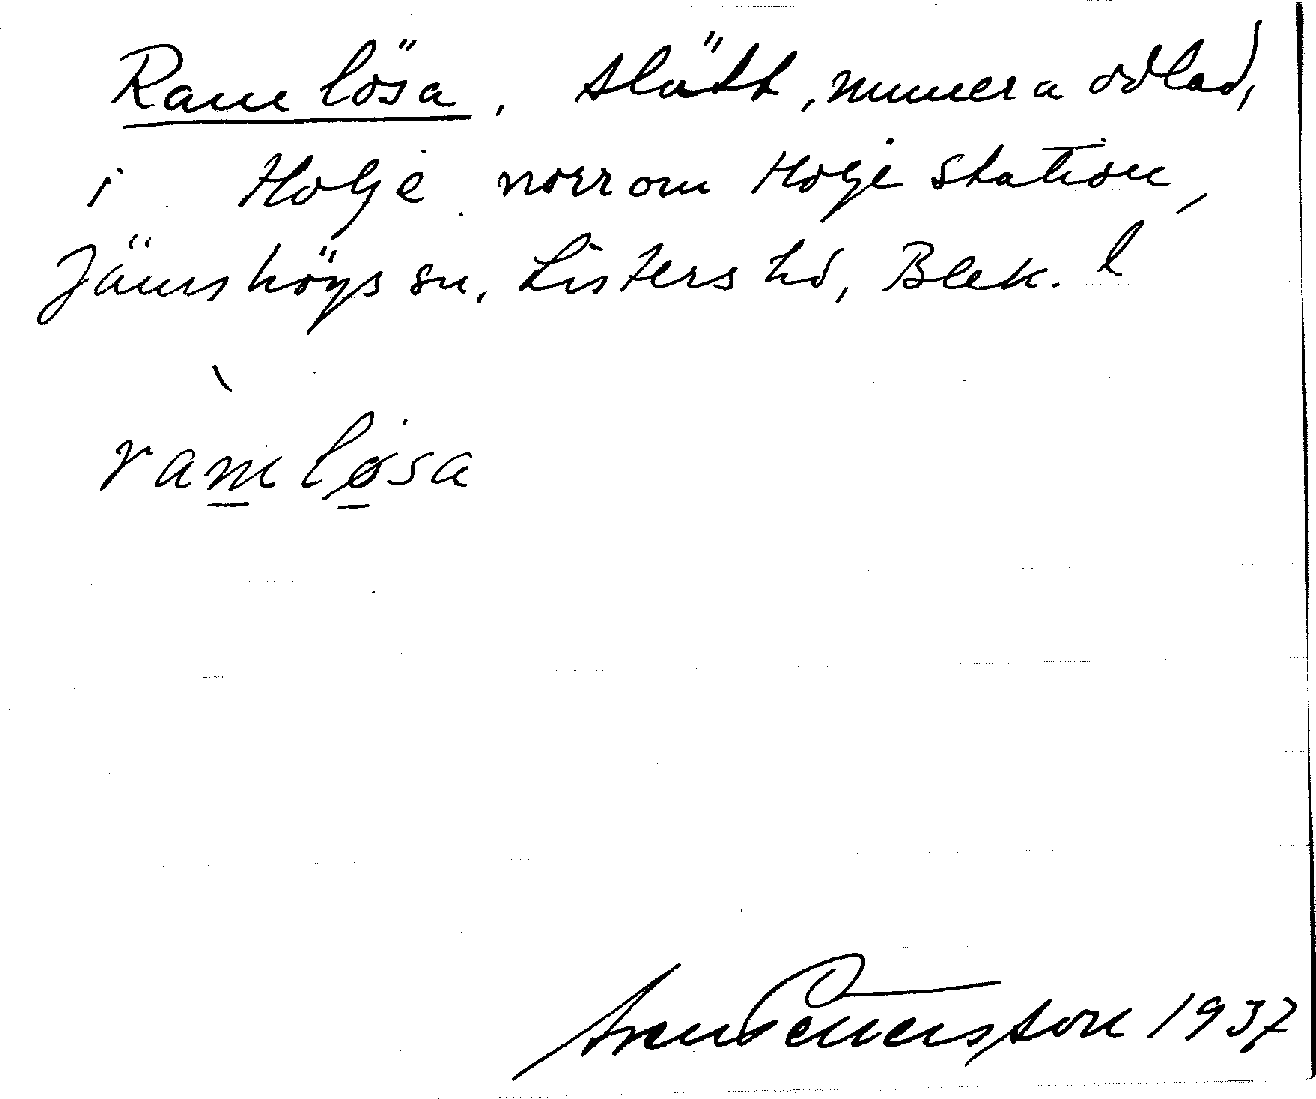 Ramlösa, slätt, numera odlad,
i Holje norrom Holje station,
Jämshögs sn. Listers hd, Blek. l
ràmløsa
Sven Pettersson 1937